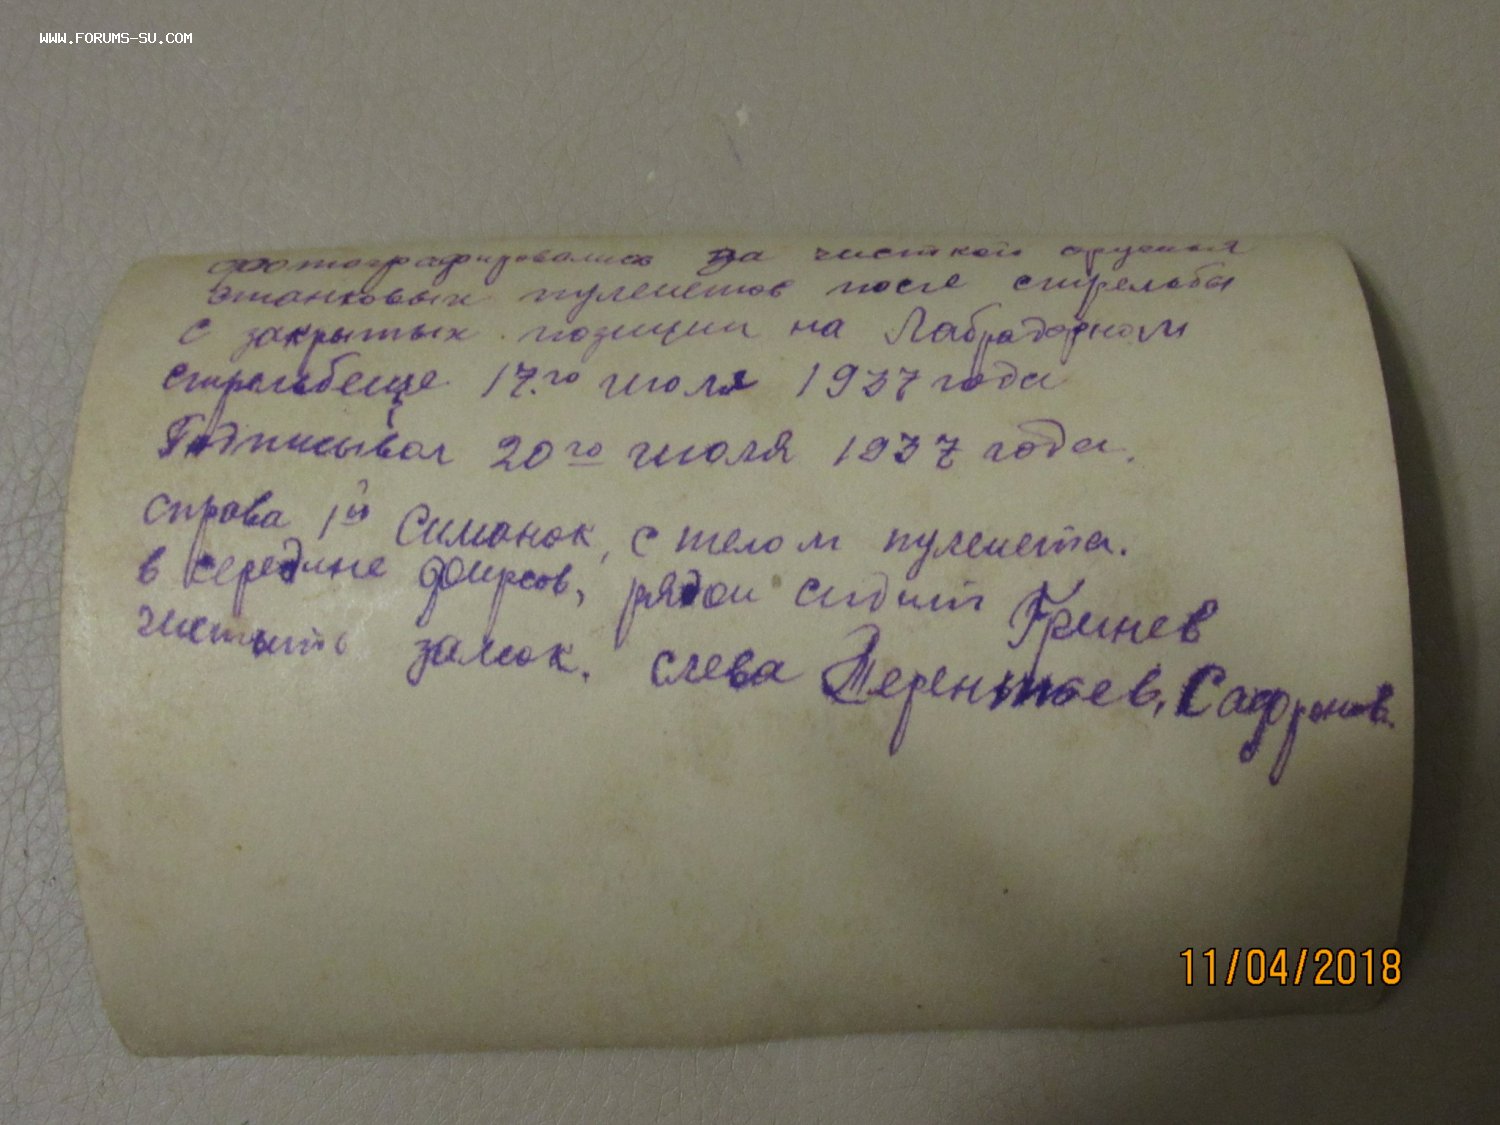 WWW.FORUMS-SU.COM
фотографировались за чисткой оружия
станковых пулеметов после стрельбы
с закрытых позиции на Лабрадорном
стрельбеще 17.го июля 1937 года
Подписывал 20го июля 1937 года.
справа 1й Симонок, с телом пулемета.
в середине Фирсов, рядом сидит Гринев
чистить замок. слева Терентьев, Сафронов.
11/04/2018